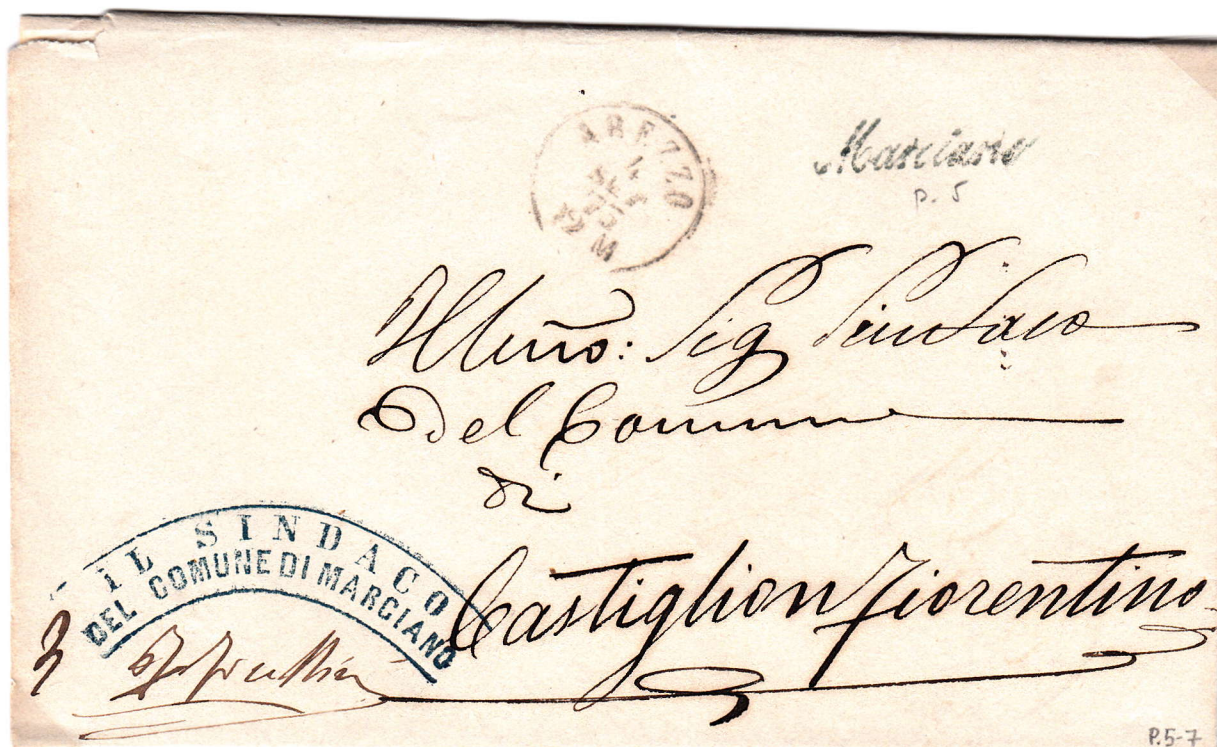 AREZZO
Marciano
P. 5
Illmo: Sig Sindaco
Del Comune
di
Castiglion Fiorentino
IL SINDACO
DEL COMUNE DI MARCIANO
P.5-7